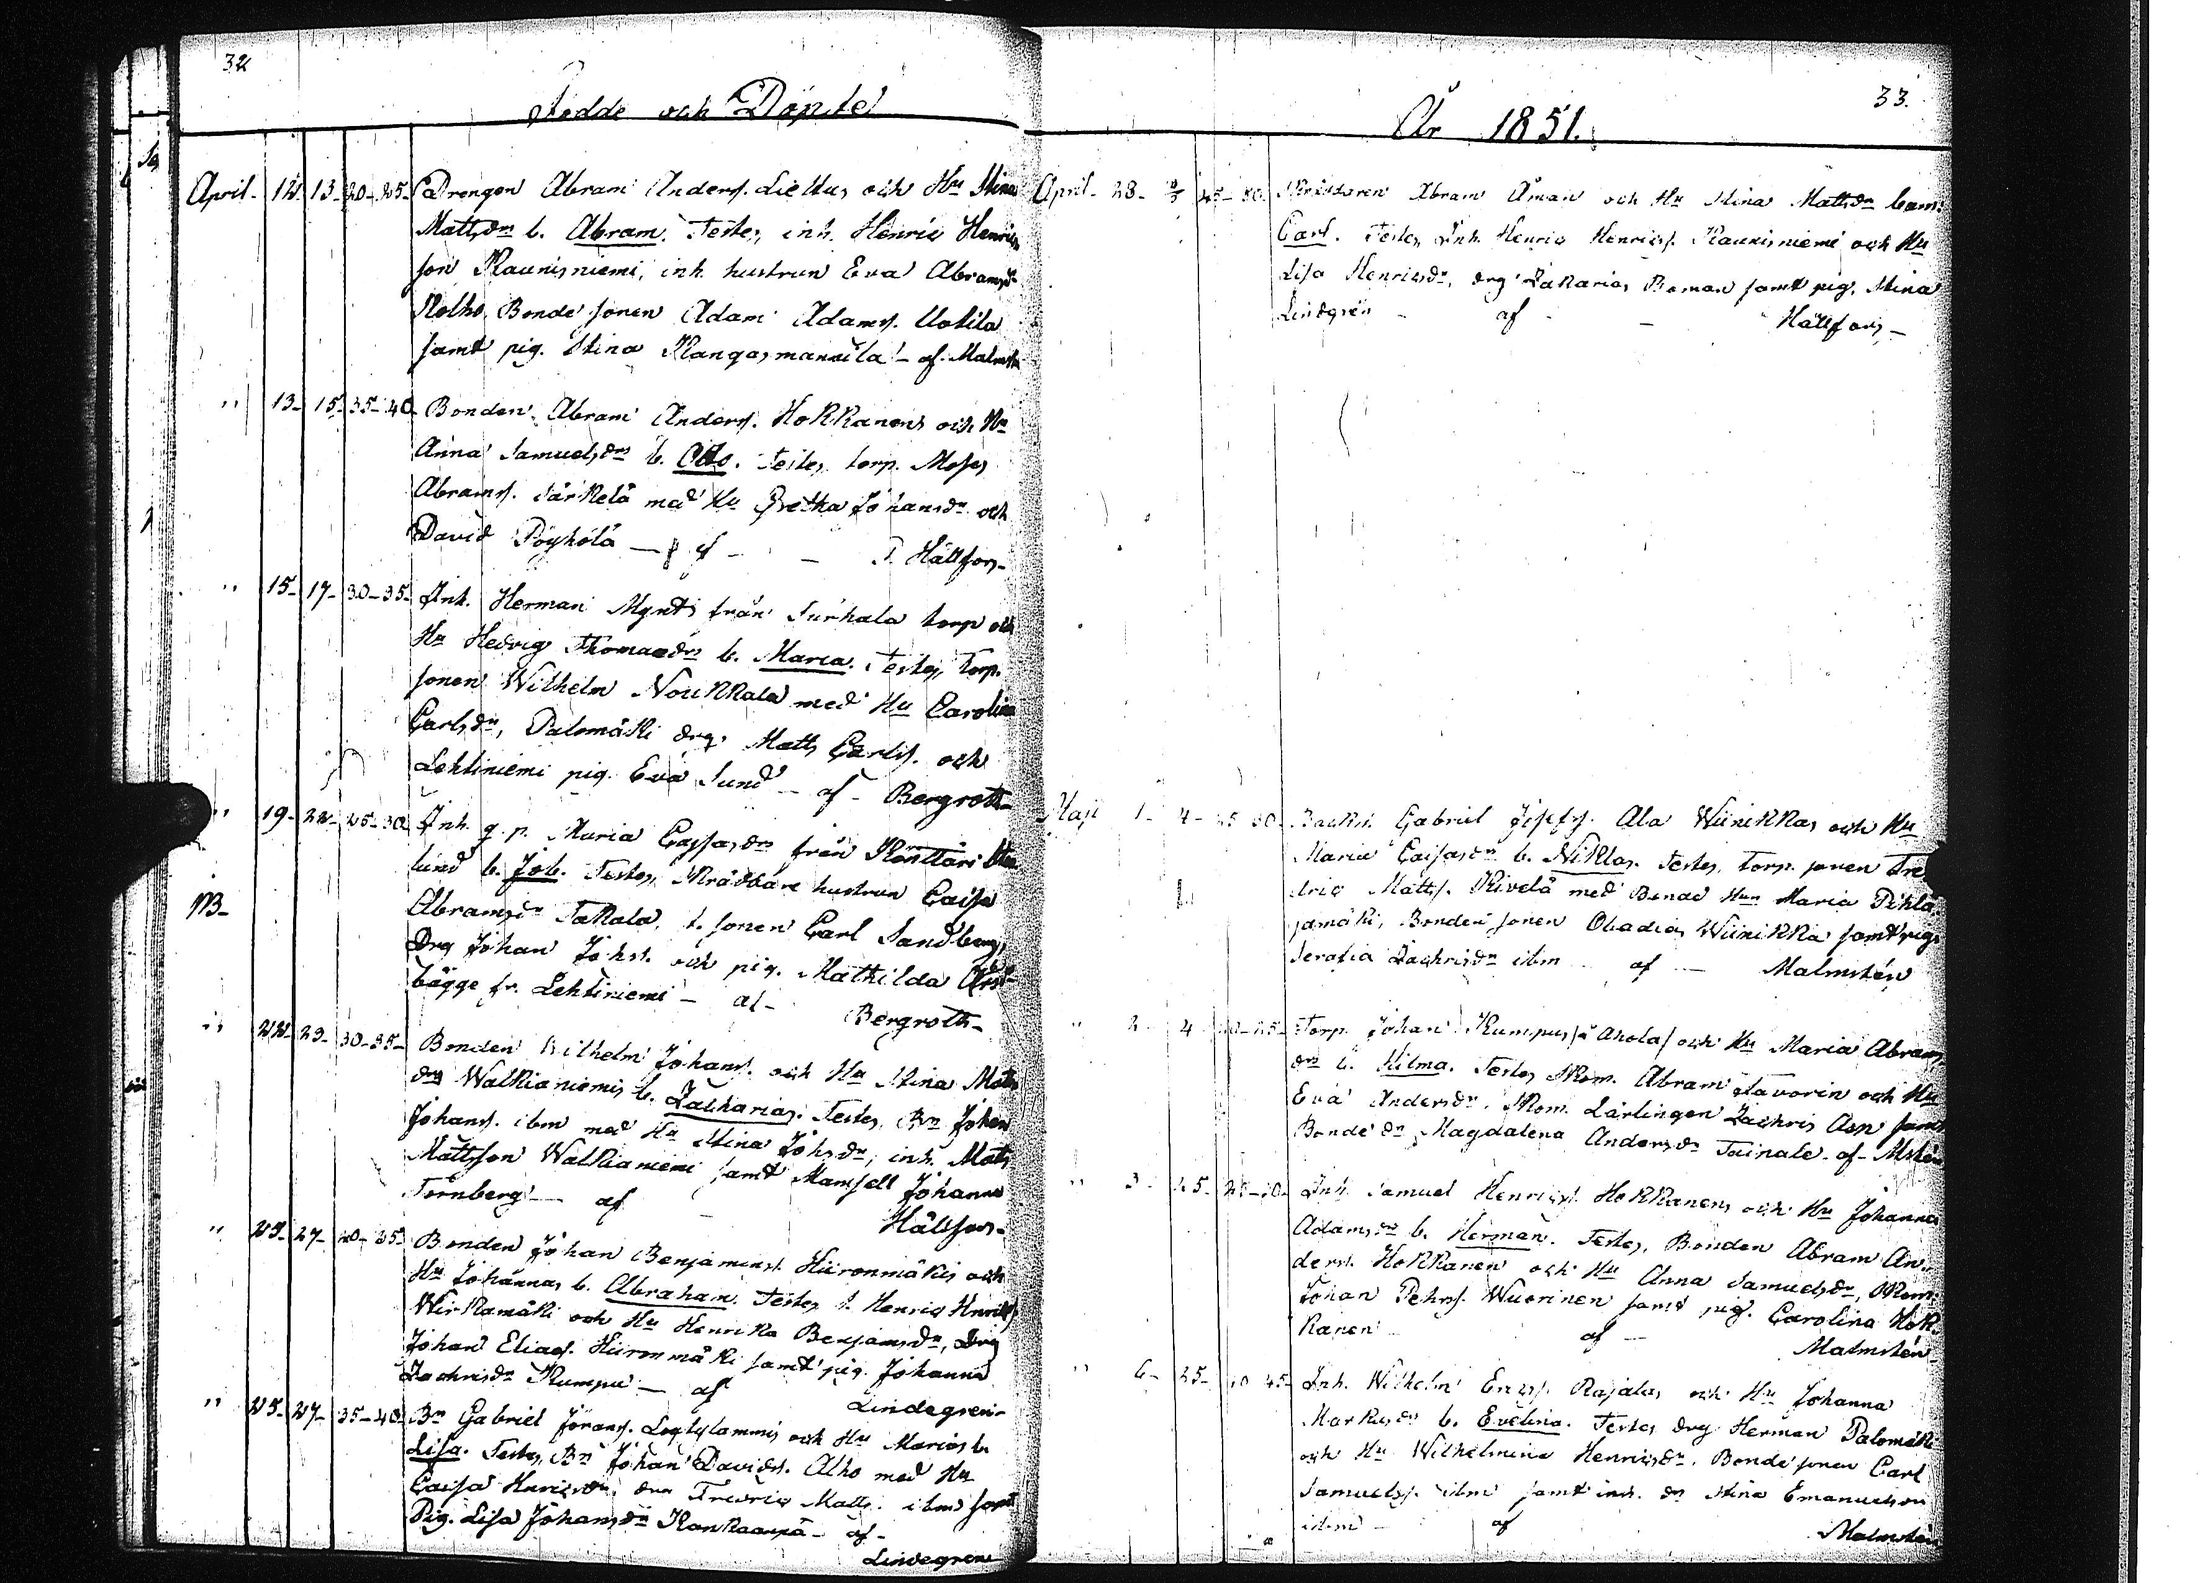 32
Födde och Döpte
April - 12 13 - 20-25 - Drengen Abram Anders. Liellus och Hu Stina
Mattsdr b. Abram. Testes, inh. Henric Henrics
son Kaunisniemi, inh. hustrun Eva Abramsdr
Kolho, Bonde sonen Adam Adams. Uotila
samt pig. Stina Kangasmansila - af. Malmstn
" 13 - 15 - 35-40 Bonden Abram Anders. Hokkanens och Hu
Anna Samuelsdr b. Otto. Testes, torp. Moses
Abrams. Särkelä med Hu Gretha Johansdr och
David Pöyhölä - af - Hällfors -
" 15 - 17 - 30-35 - Inh. Herman Mynts från Surhala torp och
Hu Hedvig Thomasdr b. Maria. Testes, Torp.
sonen Wilhelm Noukkala med Hu Carolina
Carlsdr, Palomäki drg. Matts Carls. och
Lehtiniemi pig. Eva Sund - af - Bergroth -
" 19 - 22 - 25-30 Inh. q. p. Maria Cajsasdr från Konttäri
lund b. Job. Testes, Skräddare hustrun Caisa
NB - Abramsdr Takala, t. sonen Carl Sandberg,
Drg Johan Johs. och pig. Mathilda
bägge fr. Lehtiniemi - af - Bergroth -
" 22 29 - 30-35 - Bonden Wilhelm Johans. och Hu Stina Matts
drs Walkianiemis b. Zacharias. Testes, Bn Johan
Johans. ibm med Hu Stina Johsdr, inh. Matts
Mattsson Walkianiemi samt Mamsell Johanna
Törnberg - af - Hällfors -
" 25 - 27 - 20-25 Bonden Johan Benjamins. Hiironmäkis och
Hu Johannas b. Abraham. Testes t. Henric Henrics
Wirkamäki och Hu Henrika Benjamsdr, Drg
Johan Elias. Hiironmäki samt pig. Johanna
Zachrisdr Kumpu - af Lindegren -
" 25 - 27 - 35-40 Bn Gabriel Jörans. och Hu Marias b.
Lisa. Testes, Bn Johan Davids. Alho med Hu
Caisa Henricsdr, drg Fredric Matts. ibm samt
Pig. Lisa Johansdr Kankaanpä - af -
Lindegren
33.
År 1851.
April - 28 - 4/5 25-30. Abram Åman och Hu Stina Mattsdr barn:
Carl. Testes, Inh. Henric Henrics. Kaunisniemi och Hu
Lisa Henricsdr, drg Zakarias Boman samt pig. Stina
Lindgren - af - Hällfors -
Maji 1 - 4 - 25 30 - Gabriel Josefs. Ala Wiinikkas och Hu
Maria Caisasdr b. Niklas. Testes, torp. sonen Fre
dric Matts. Kivelä med Bonde Hun Maria Pihla
jamäki, Bonden sonen Obadias Wiinikka samt pig
Serafia Zachrisdr ibm - af - Malmstén
" 2 - 4 20-25 - Torp. Johan Kumpus /å Ahola/ och Hu Maria Abrams
dr b. Hilma. Testes Skom. Abram Favorin och Hu
Eva Andersdr, Skom. Lärlingen Zachris Asp samt
Bonde dr Magdalena Andersdr Tainale - af - Mstén
" 3 - 25 - 25-30 - Inh. Samuel Henrics. Hokkanens och Hu Johanna
Adamsdr b. Herman. Testes, Bonden Abram An
ders. Hokkanen och Hu Anna Samuelsdr, Skom.
Johan Pehrs. Wuorinen samt pig. Carolina Hok
kanen - af - Malmstén -
" 6 - 25 - 40 45 - Inh. Wilhelm Erics. Rajalas och Hu Johanna
Markusdr b. Evelina. Testes drg Herman Palomäki
och Hu Wilhelmina Henricsdr, Bonde sonen Carl
Samuels. ibm samt inh. dr Stina Emanuelsdr
ibm - af Malmstén